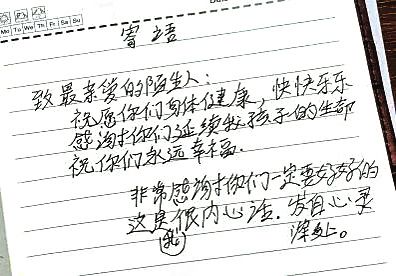 Mo Tu We Th Fr Sa Su
寄语
致最亲爱的陌生人：
祝愿你们身体健康，快快乐乐
感谢你们延续我孩子的生命
祝你们永远幸福.
非常感谢你们一定要好好的
这是很内心话.发自心灵
我
深处。